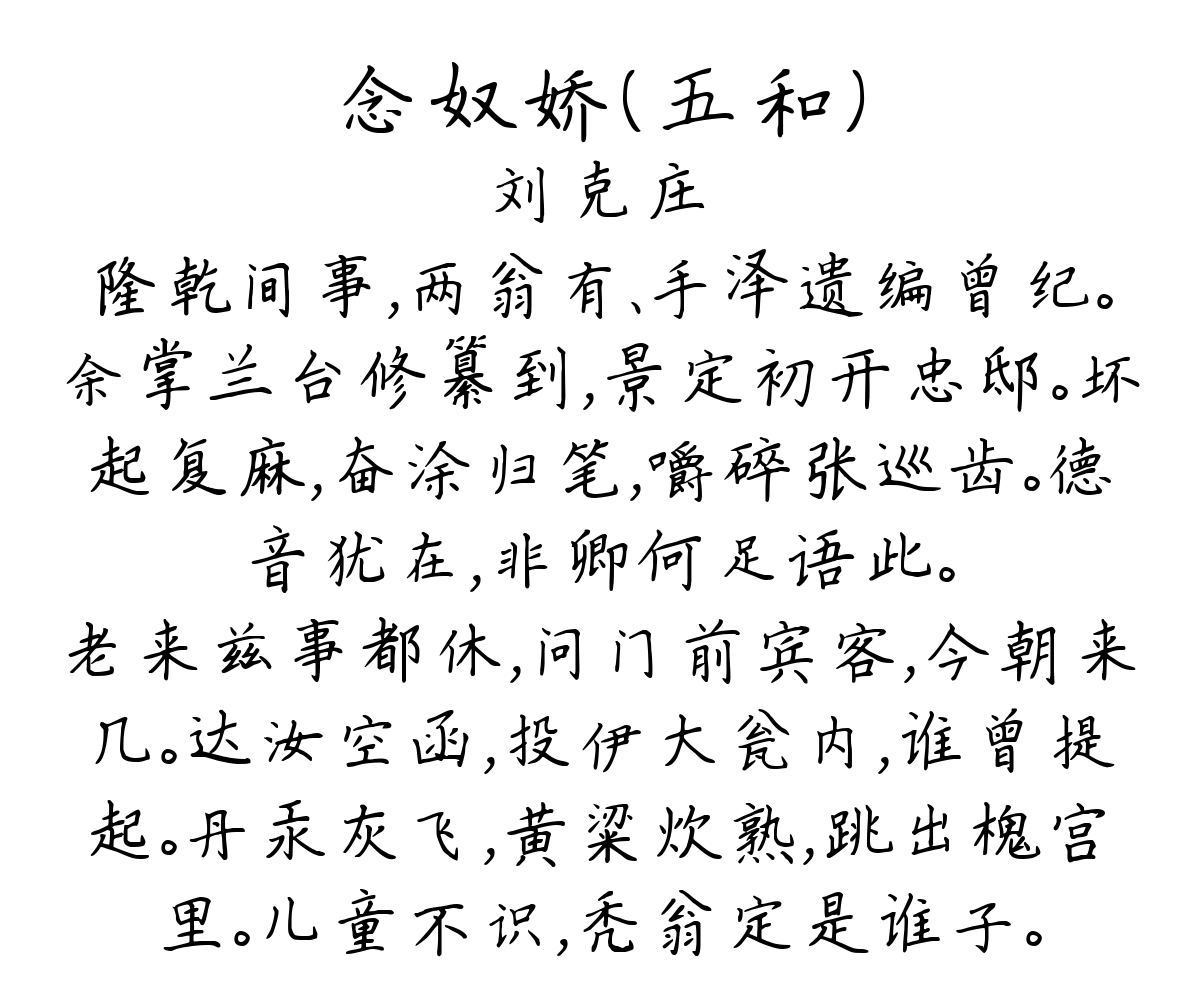 念奴娇(五和)
刘克庄
隆乾间事,两翁有、手泽遗编曾纪。
余掌兰台修纂到,景定初开忠邸。坏
起复麻,奋涂归笔,嚼碎张巡齿。德
音犹在,非卿何足语此。
老来兹事都休,问门前宾客,今朝来
几。达汝空函,投伊大瓮内,谁曾提
起。丹汞灰飞,黄粱炊熟,跳出槐宫
里。儿童不识,秃翁定是谁子。